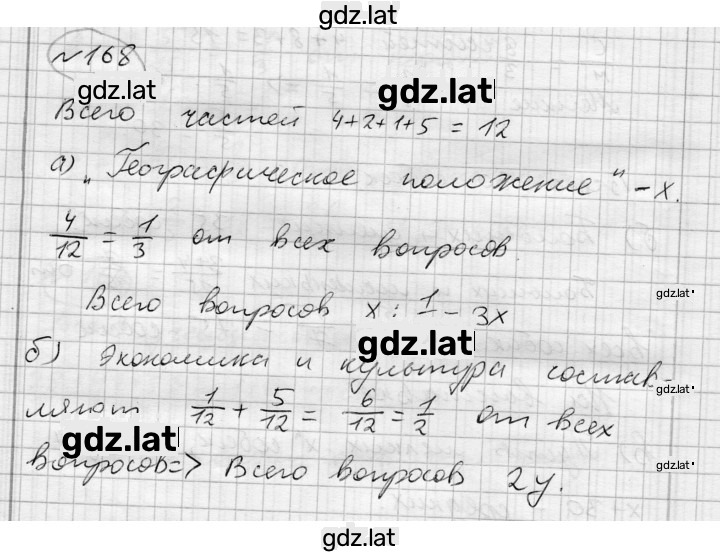 gdz.lat
№168
gdz.lat
gdz.lat
Всего частей 4+2+1+5=12
а) „Географическое положение" – x.
4/12 = 1/3 от всех вопросов.
gdz.lat
Всего вопросов x : 1/ – 3x
gdz.lat
б) Экономика и культура состав-
gdz.lat
ляют 1/12 + 5/12 = 6/12 = 1/2 от всех
gdz.lat
вопросов => Всего вопросов 2y.
gdz.lat
gdz.lat